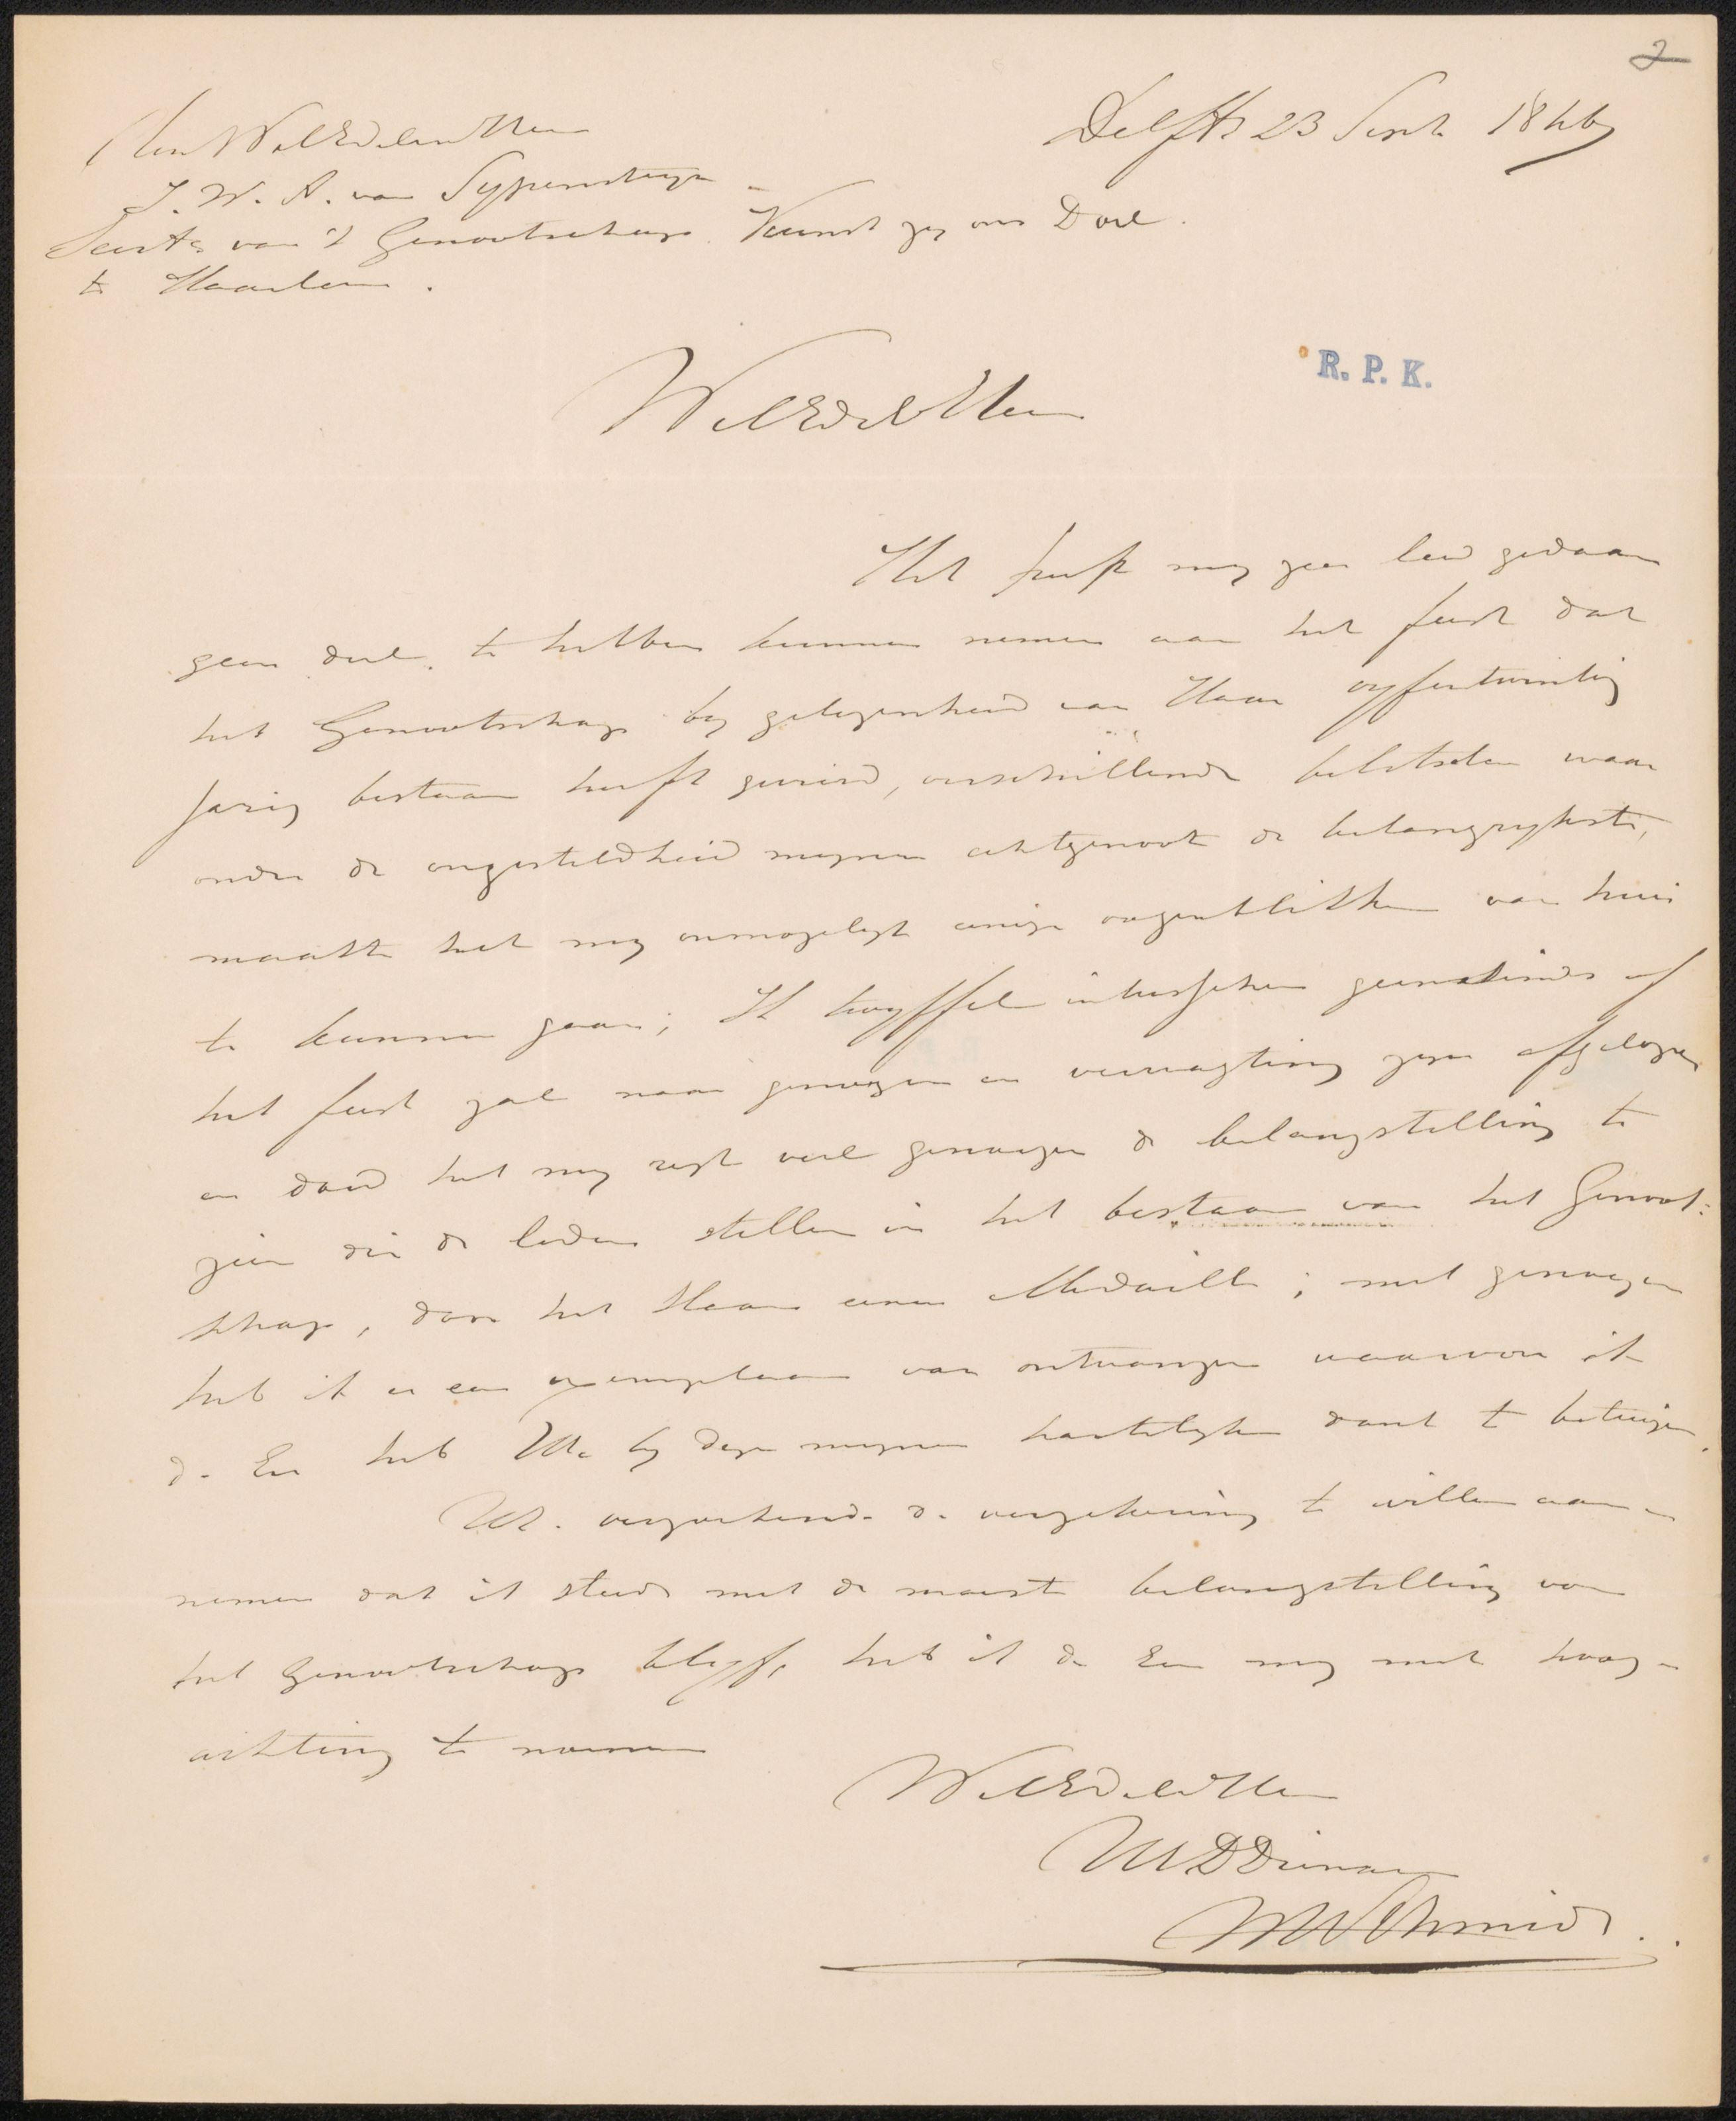 2
Delft 23 Sept. 1846
Den WelEdelen Heer
J. W. A. van Sypensteyn
Secrts van 't Genootschap. Kunst zy ons Doel.
te Haarlem.
R. P. K.
WelEdele Heer
Het heeft my zeer leed gedaan
geen deel te hebben kunnen nemen aan het feest dat
het Genootschap by gelegenheid van Haar vyfentwintig
Jarig bestaan heeft gevierd, verschillende beletselen waar
onder de ongesteldheid myner echtgenoote de belangrykste,
maakte het my onmogelyk eenige oogenblikken van huis
te kunnen gaan; Ik twyffel intusschen geenszins of
het feest zal naar genoegen en verwagting zyn afgelopen
en doed het my regt veel genoegen de belangstelling te
zien die de leden stellen in het bestaan van het Genoot:
schap, door het slaan eener Medaille; met genoegen
heb ik er een exemplaar van ontvangen waarvoor ik
d. Eer heb UE. by deze mynen hartelyken dank te betuigen.
UE. verzoekende de verzekering te willen aan-
nemen dat ik steeds met de meeste belangstelling voor
het Genootschap blyf, heb ik de Eer my met hoog-
achting te noemen
WelEdele Heer
UED Dienaar
WH Schmidt.